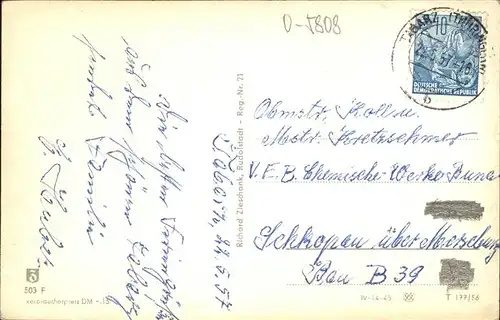 D-5808
TABARZ (THÜRINGER W)
10
DEUTSCHE
DEMOKRATISCHE REPUBLIK
b
Die besten Feriengrüße
aus dem schönen Tabarz
sendet Familie
Tabarz, 22.5.57
Richard Zieschank, Rudolstadt - Reg.-Nr. 21
Obmstr. Koll u.
Mstr. Kretzschmer
V.E.B. Chemische-Werke Buna
Schkopau über Merseburg
Bau B 39
503 F
Verbraucherpreis DM -.15
IV-14-45
T 177/56